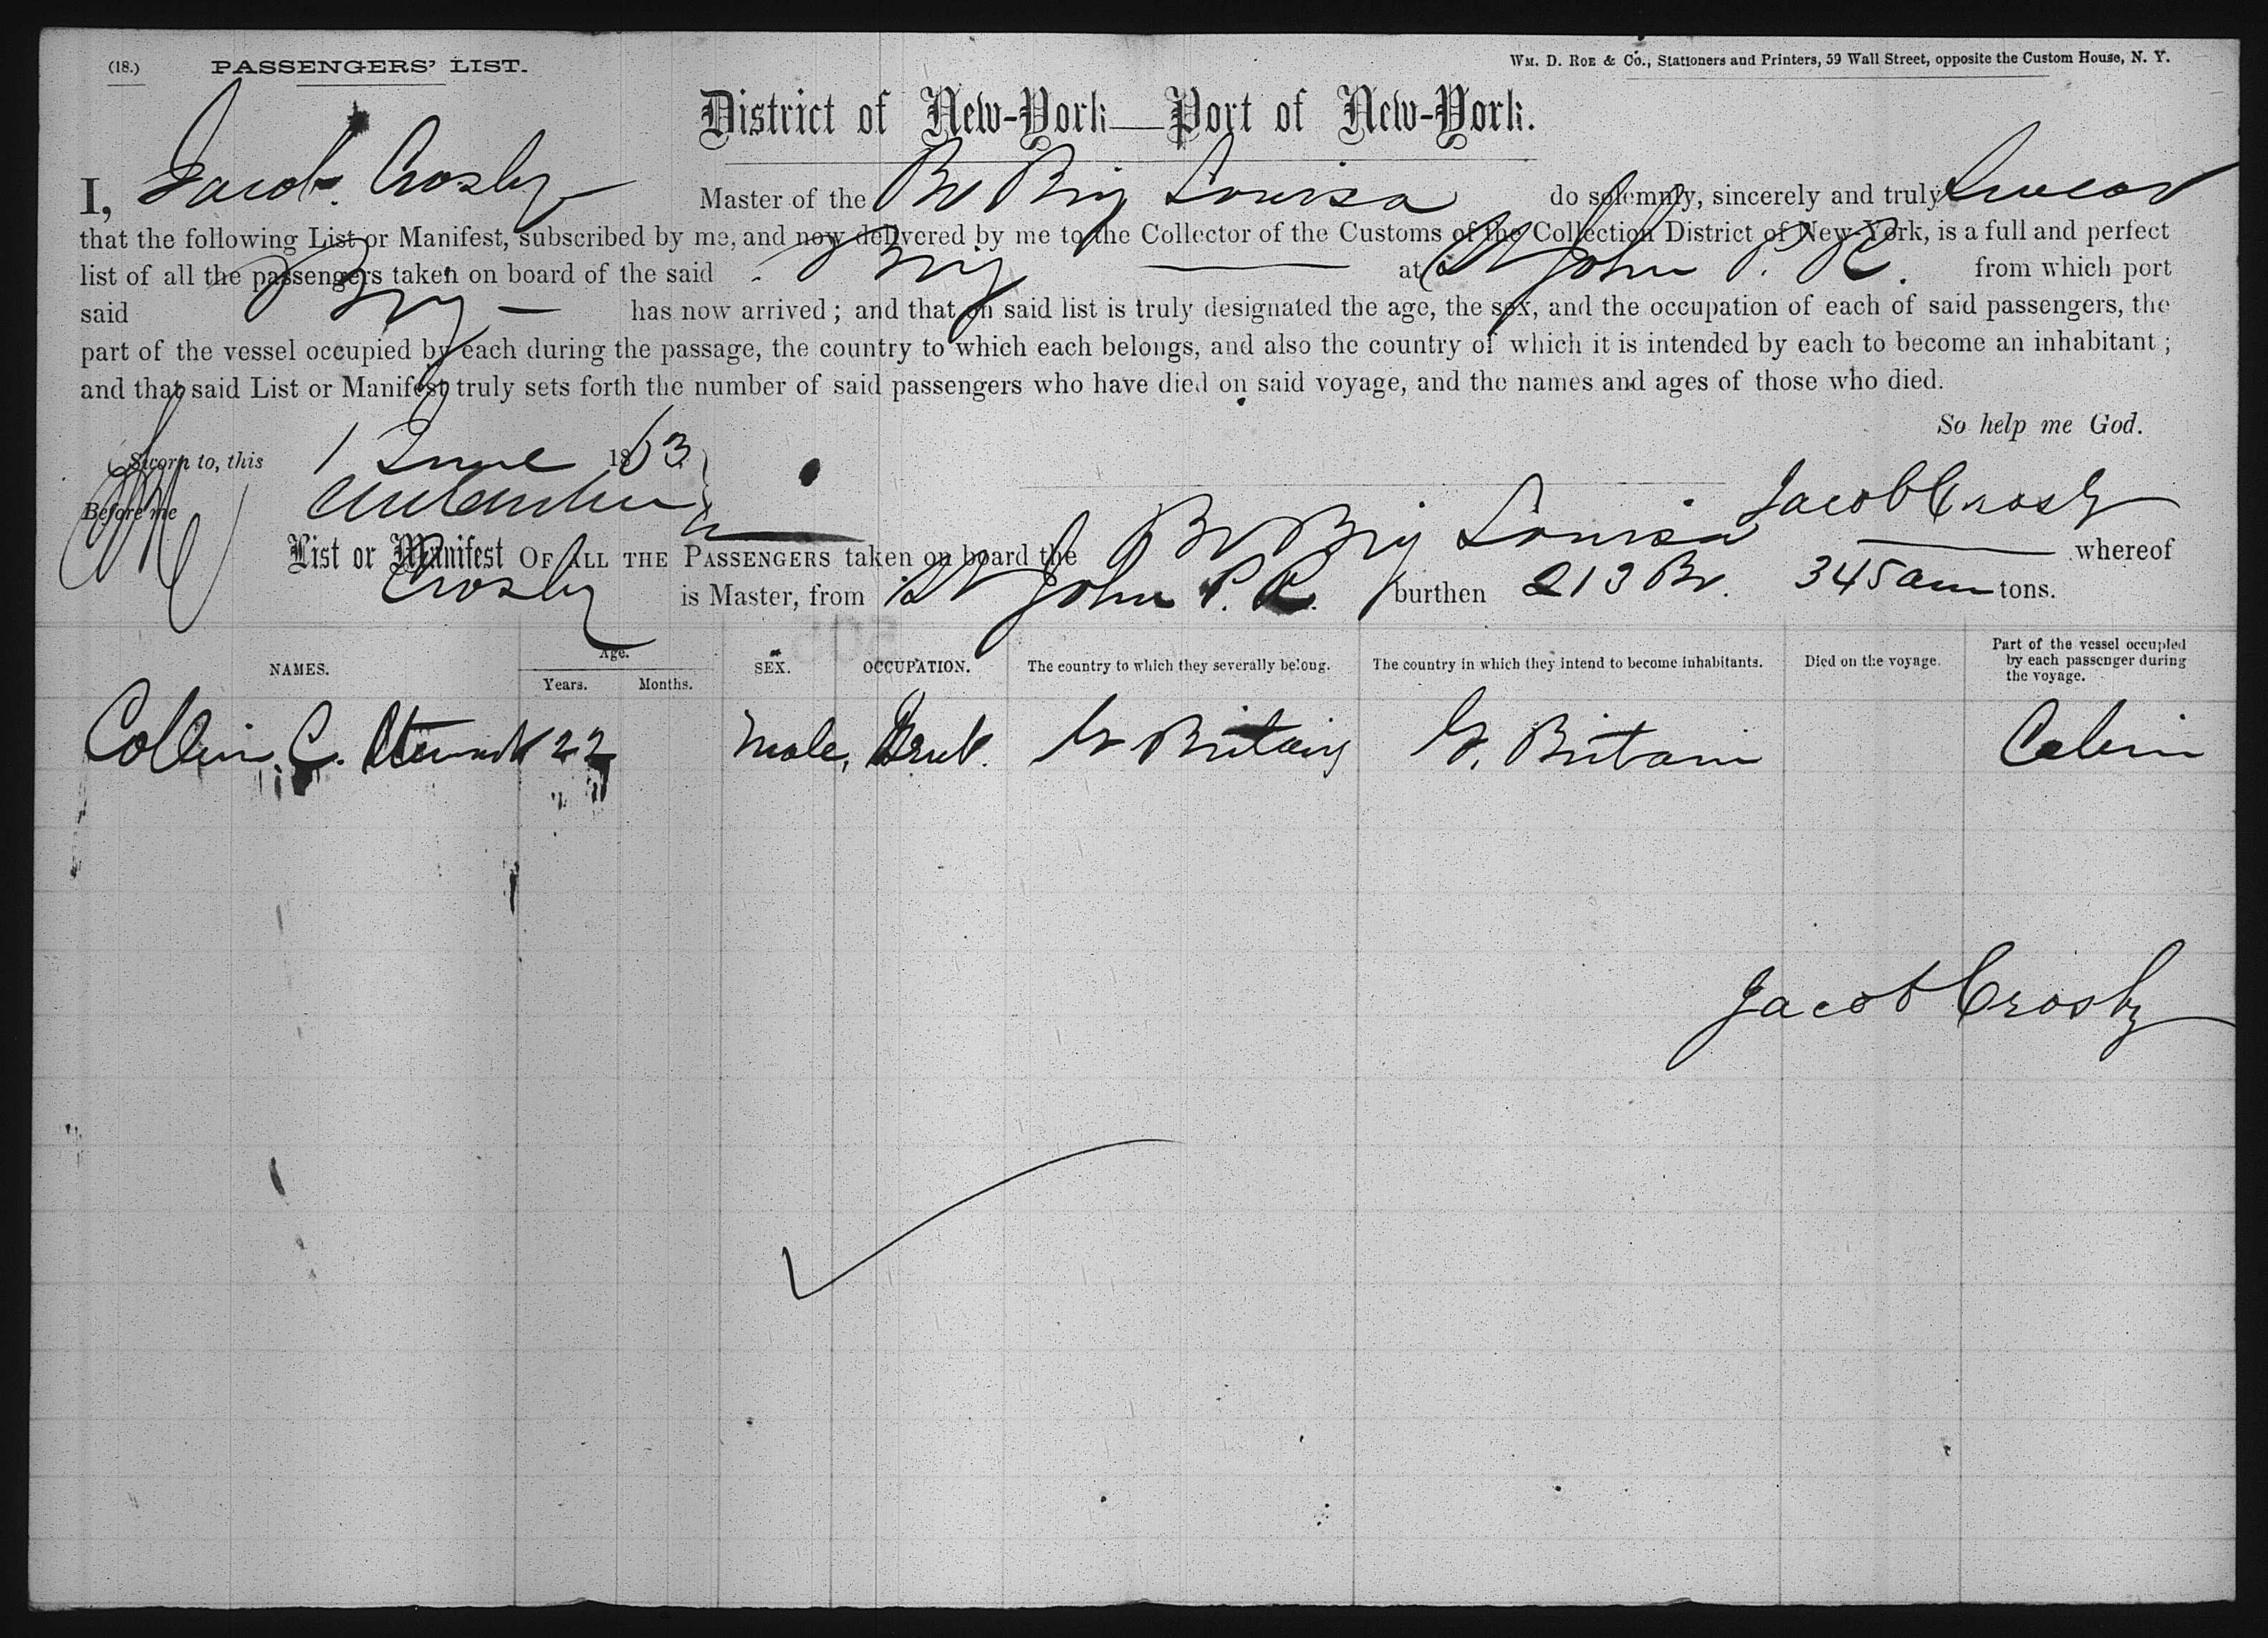 (18.) PASSENGERS' LIST. WM. D. ROE & Co., Stationers and Printers, 59 Wall Street, opposite the Custom House, N. Y.
District of New-York—Port of New-York.
I, Jacob Crosby Master of the Br Brig Louisa do solemnly, sincerely and truly Swear
that the following List or Manifest, subscribed by me, and now delivered by me to the Collector of the Customs of the Collection District of New-York, is a full and perfect
list of all the passengers taken on board of the said Brig at St John P. R. from which port
said Brig has now arrived; and that on said list is truly designated the age, the sex, and the occupation of each of said passengers, the
part of the vessel occupied by each during the passage, the country to which each belongs, and also the country of which it is intended by each to become an inhabitant;
and that said List or Manifest truly sets forth the number of said passengers who have died on said voyage, and the names and ages of those who died.
So help me God.
Sworn to, this 1 June 1863
Before me Jacob Crosby
List or Manifest OF ALL THE PASSENGERS taken on board the Br Brig Louisa whereof
Crosby is Master, from St John P. R. burthen 213 Br. 345 am tons.
NAMES. Age. Years. Months. SEX. OCCUPATION. The country to which they severally belong. The country in which they intend to become inhabitants. Died on the voyage. Part of the vessel occupied by each passenger during the voyage.
C. 22 Male, G Britain G. Britain Cabin
Jacob Crosby